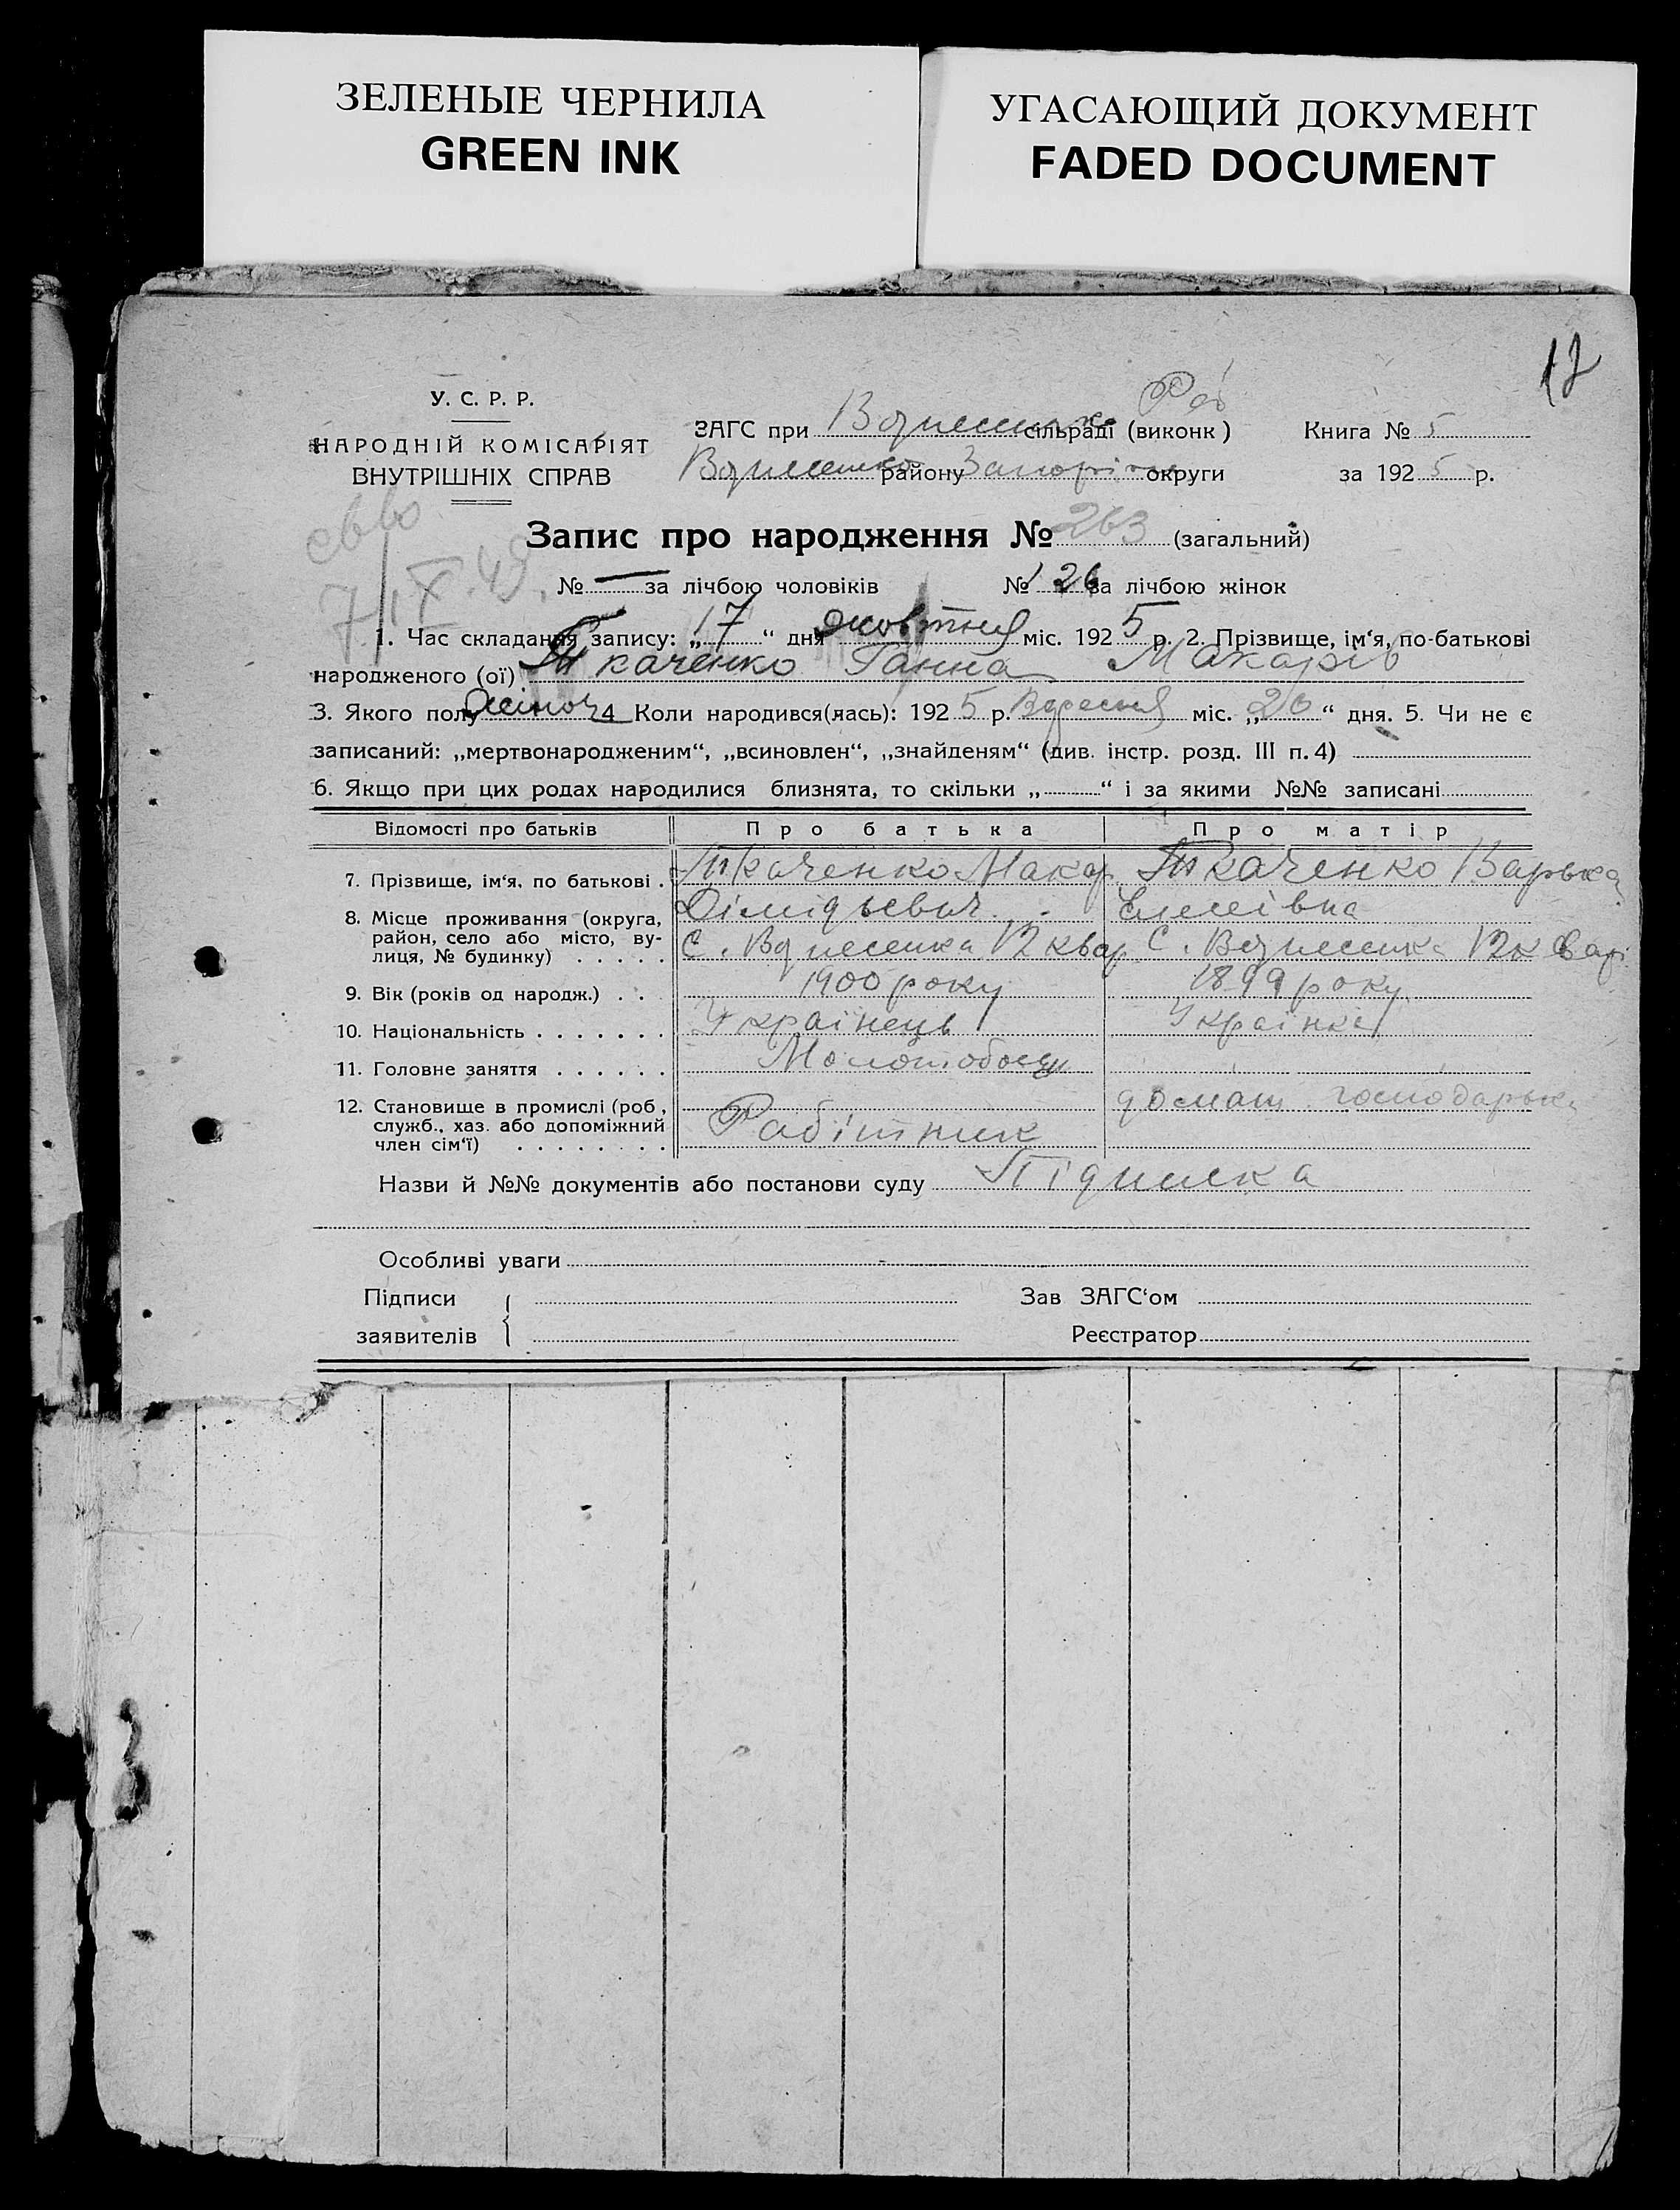 ЗЕЛЕНЫЕ ЧЕРНИЛА
GREEN INK
УГАСАЮЩИЙ ДОКУМЕНТ
FADED DOCUMENT
12
У. С. Р. Р.
НАРОДНІЙ КОМІСАРІЯТ
ВНУТРІШНІХ СПРАВ
ЗАГС при сільраді (виконк)
району округи
Книга № 5
за 1925 р.
7/X.49.
Запис про народження № 263 (загальний)
№ — за лічбою чоловіків № 126 за лічбою жінок
1. Час складання запису: „17“ дня жовтня міс. 1925 р. 2. Прізвище, ім‘я, по-батькові
народженого (ої) Ткаченко Ганна Макарів
3. Якого полу жіноч 4 Коли народився(лась): 1925 р. Вересня міс. „26“ дня. 5. Чи не є
записаний: „мертвонародженим“, „всиновлен“, „знайденям“ (див. інстр. розд. III п. 4)
6. Якщо при цих родах народилися близнята, то скільки „ “ і за якими №№ записані
Відомості про батьків Про батька Про матір
7. Прізвище, ім‘я, по батькові . Ткаченко Макар Ткаченко Варька
8. Місце проживання (округа, район, село або місто, вулиця, № будинку) . . . . . С. Вознесенка 12 квар. С. Вознесенка 12 квар
9. Вік (років од народж.) . . . 1900 року 1899 року
10. Національність . . . . . . . Українець Українка
11. Головне заняття . . . . . . Молотобоец
12. Становище в промислі (роб., служб., хаз. або допоміжний член сім‘ї) . . . . . . . . Рабітник домаш господарька
Назви й №№ документів або постанови суду Підписка
Особливі уваги
Підписи
заявителів
Зав ЗАГС‘ом
Реєстратор